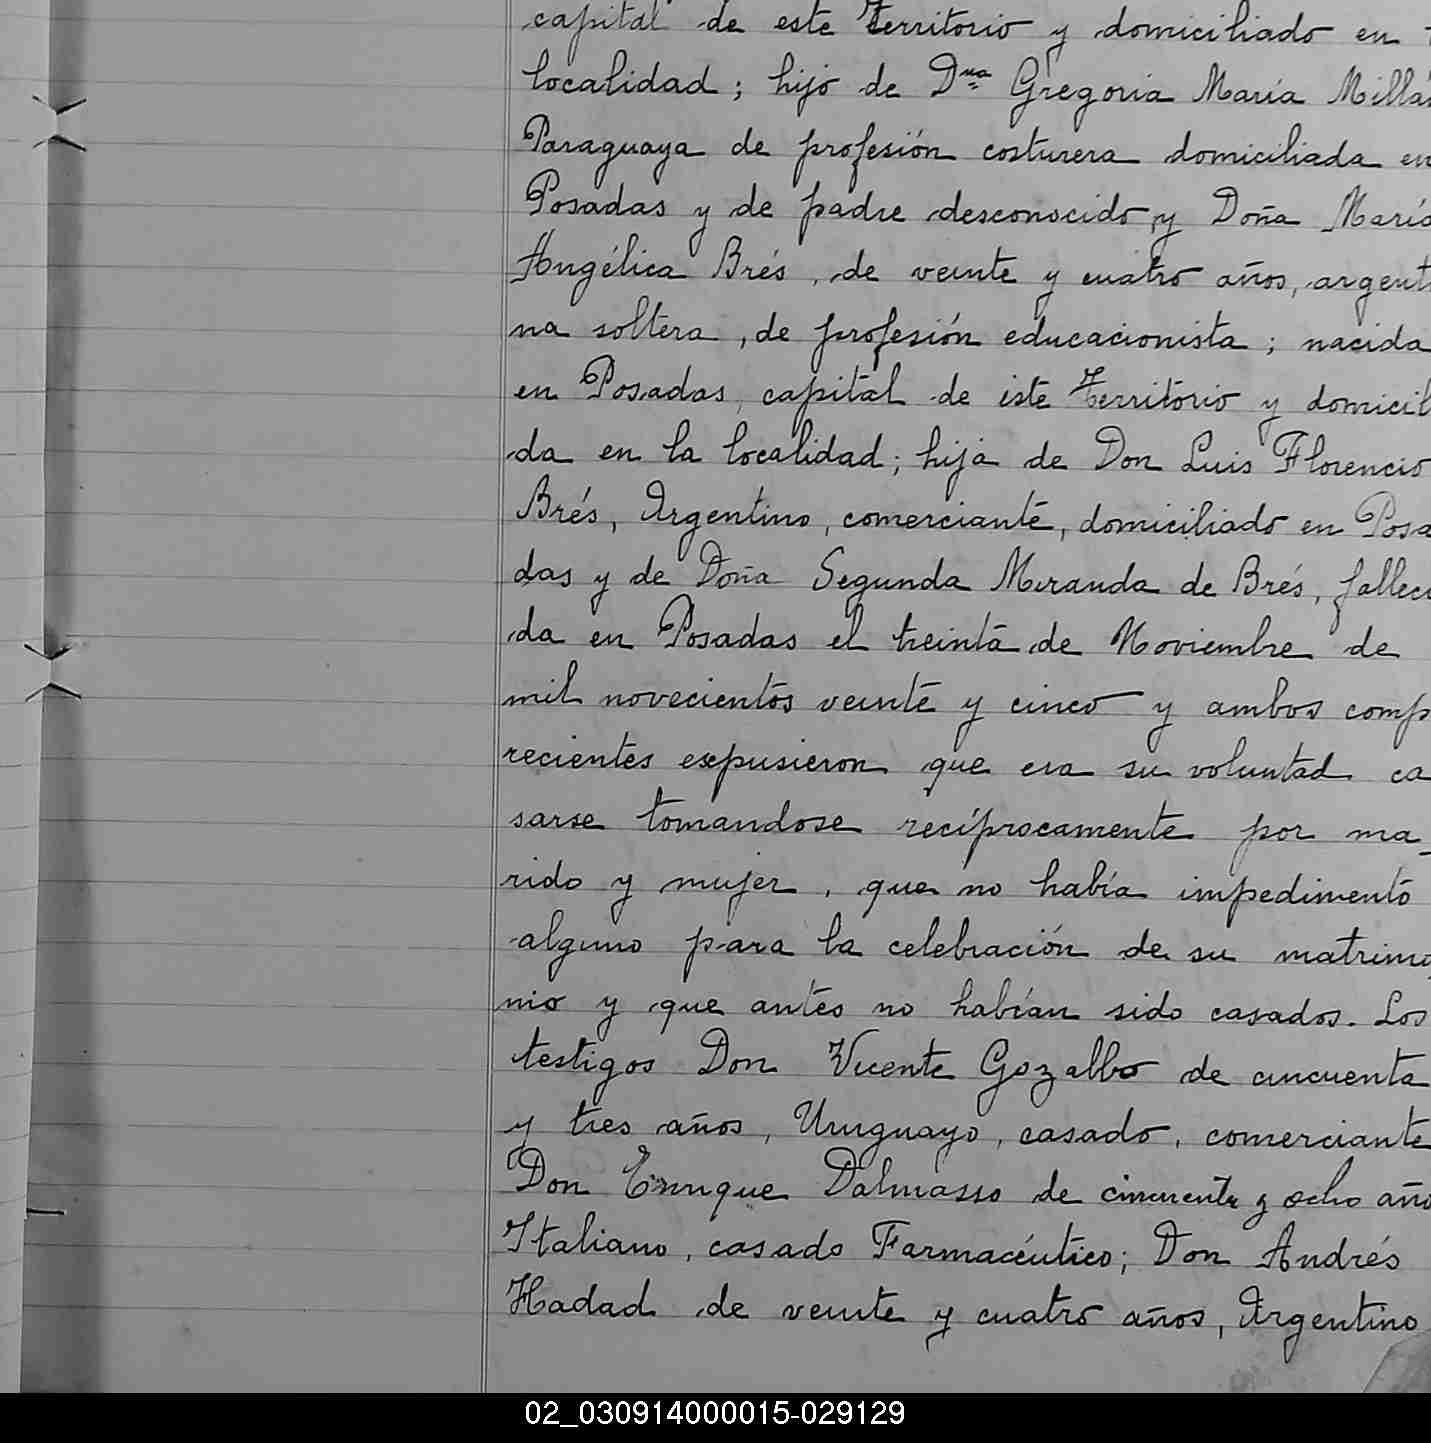 capital de este Territorio y domiciliado en
localidad; hijo de Dña Gregoria María Millá
Paraguaya de profesión costurera domiciliada en
Posadas y de padre desconocido, y Doña María
Angélica Brés, de veinte y cuatro años, argenti
na soltera, de profesión educacionista; nacida
en Posadas, capital de este Territorio y domicil
da en la localidad; hija de Don Luis Florencio
Brés, Argentino, comerciante, domiciliado en Posa
das y de Doña Segunda Miranda de Brés, falleci
da en Posadas el treinta de Noviembre de
mil novecientos veinte y cinco y ambos comp
recientes expusieron que era su voluntad ca
sarse tomandose recíprocamente por ma_
rido y mujer, que no había impedimento
alguno para la celebración de su matrimo
nio y que antes no habían sido casados. Los
testigos Don Vicente Gozalbo de cincuenta
y tres años, Uruguayo, casado, comerciante
Don Enrique Dalmasso de cincuenta y ocho año
Italiano, casado Farmacéutico; Don Andrés
Hadad de veinte y cuatro años, Argentino
02_030914000015-029129